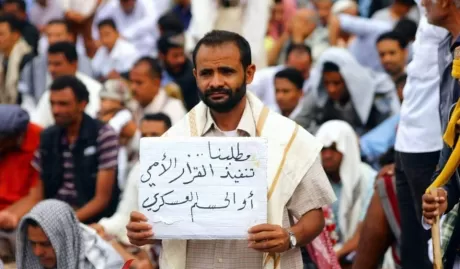 مطلبنا
تنفيذ القرار الأممي
أو الحسم العسكري